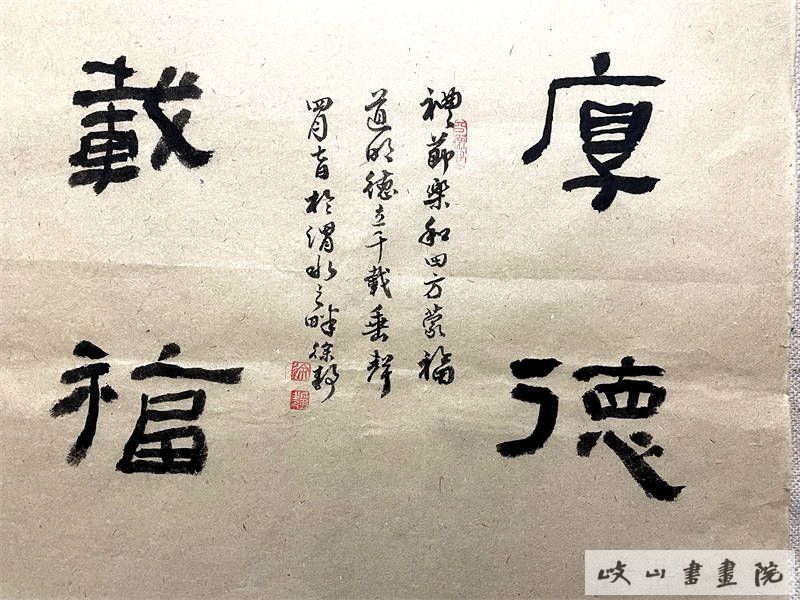 厚德
禮節樂和四方蒙福
道明德立千載垂聲
四月吉日於渭水之畔徐
載福
岐山書畫院